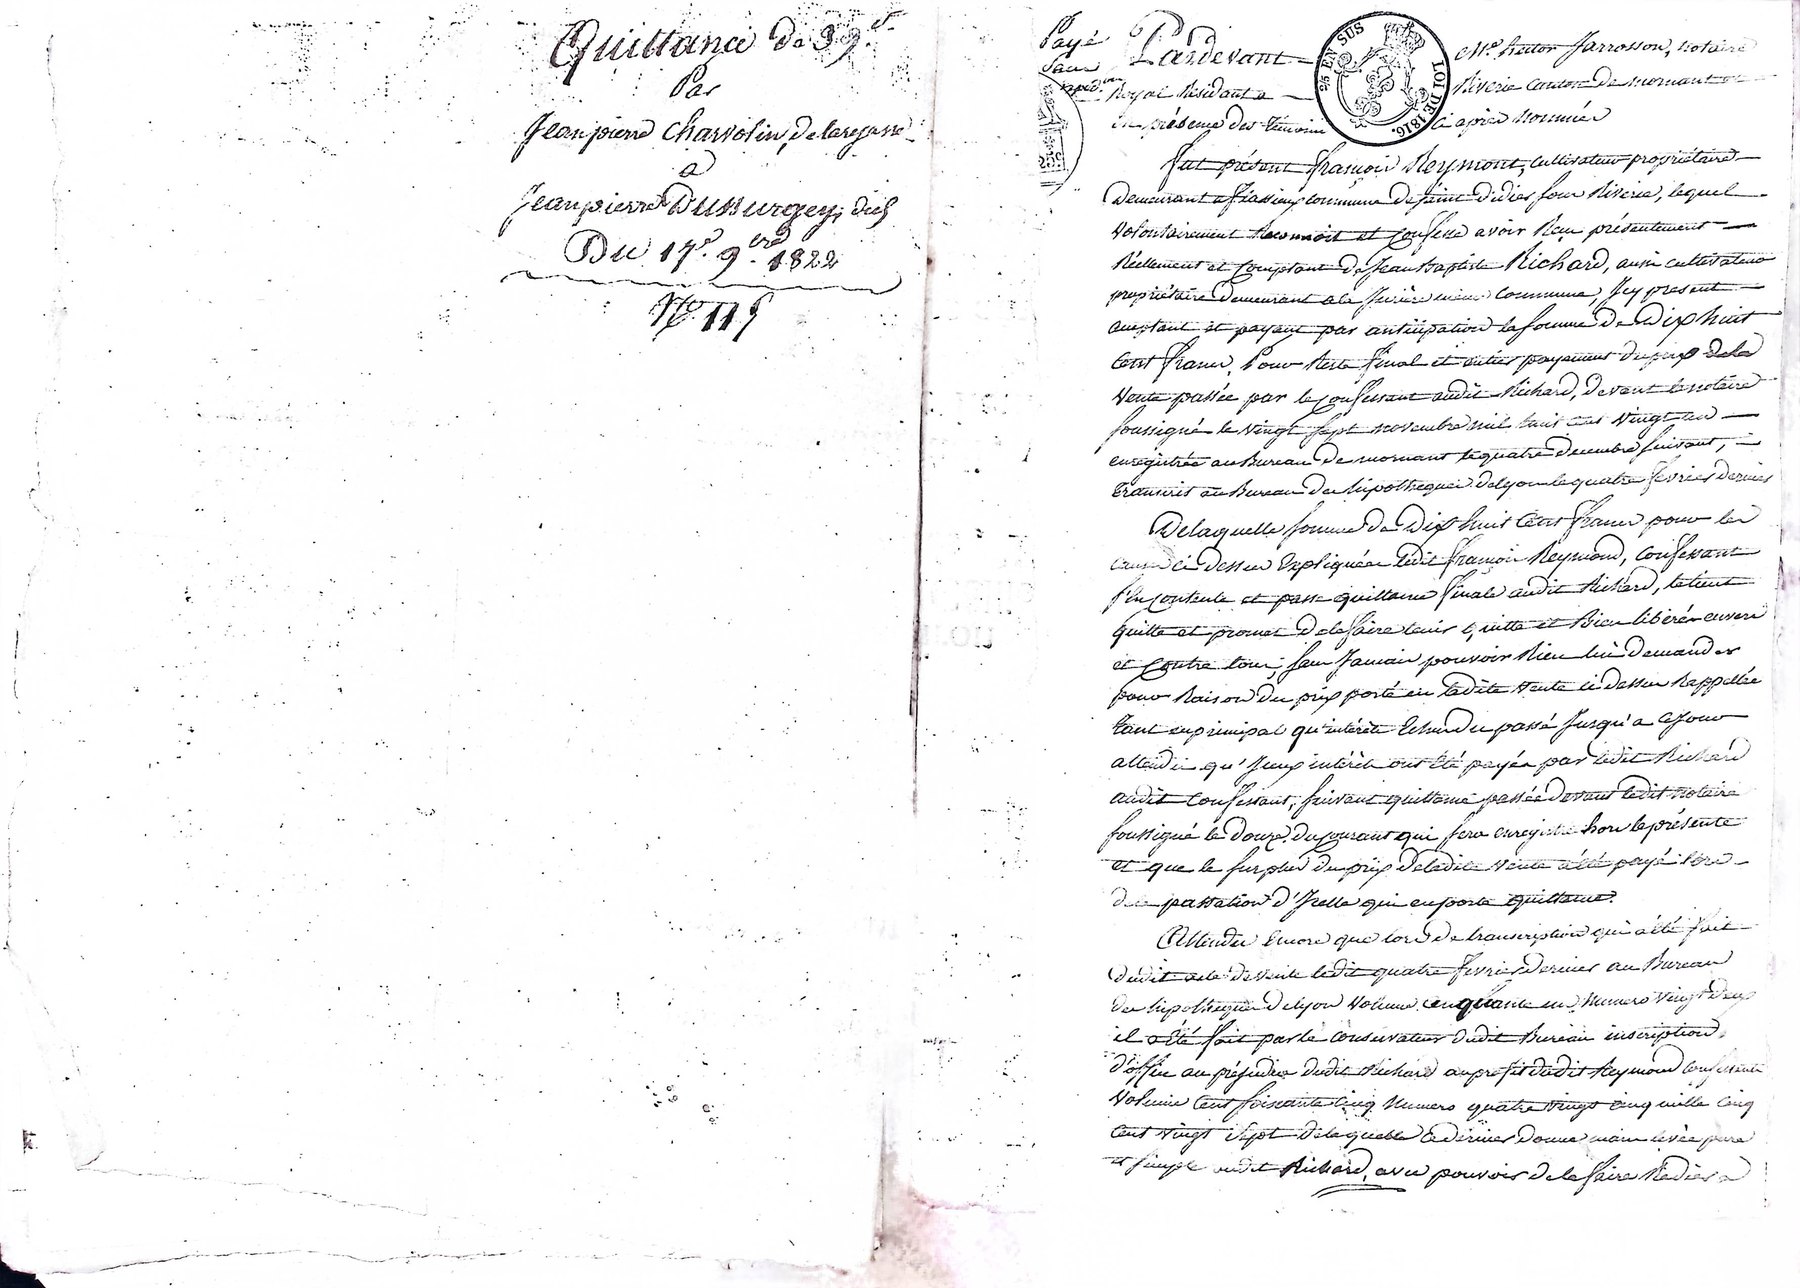 Quittance de 39.f
Par
Jean pierre Charvolin, delarejasse
a
Jean pierre Dussurgey, dich
Du 17.e 9.bre 1822
N.o 115
Payé
Sans
expéd.on
25 EN SUS
LOI DE 1816.
Pardevant M.e hector Jarrosson, notaire
Royal Résidant a Riverie canton de mornant
en présence des Témoins ci après nommés
fut présent françois Reymont, cultivateur propriétaire
Demeurant a fiassieux commune de saint didier sous Riverie, lequel
volontairement Reconnoit et confesse avoir Reçu présentement
Réellement et comptant de Jean baptiste Richard, aussi cultivateur
propriétaire demeurant a la même commune, Icy present
acceptant et payant par anticipation la somme de Dix huit
Cent francs, Pour Reste final et entier payement du prix de la
vente passée par le confessant audit Richard, devant le notaire
soussigné le vingt sept novembre mil huit cent vingt un
enregistrée au Bureau de mornant le quatre décembre suivant,
transcrit au Bureau des hipotheques de lyon le quatre février dernier
De laquelle somme de Dix huit Cent francs pour les
causes ci dessus Expliquées ledit françois Reymond, confessant
s'en contente et passe quittance finale audit Richard, le tient
quitte et promet de le faire tenir quitte et Bien libéré envers
et contre tous, sans Jamais pouvoir Rien lui demander
pour Raison du prix porté en ladite vente ci dessus Rappellée
tant en principal qu'intérêts Echus du passé Jusqu'a ce Jour
attendu qu'Iceux intérêts ont été payés par ledit Richard
audit confessant, suivant quittance passée devant ledit notaire
soussigné le douze du courant qui sera enregistré hors la présente
et que le surplus du prix de ladite vente a été payé lors
de la passation d'Icelle qui en porte quittance.
Attendu Encore que lors de transcription qui a été fait
dudit acte de vente ledit quatre février dernier au Bureau
des hipotheques de lyon volume cinquante un Numero vingt deux
il a été fait par le conservateur dudit Bureau inscription
d'office au préjudice dudit Richard au profit dudit Reymond confessant
volume Cent soixante cinq Numero quatre vingt cinq mille cinq
cent vingt sept de laquelle ce dernier donne main levée pure
et simple audit Richard, avec pouvoir de la faire Radier a